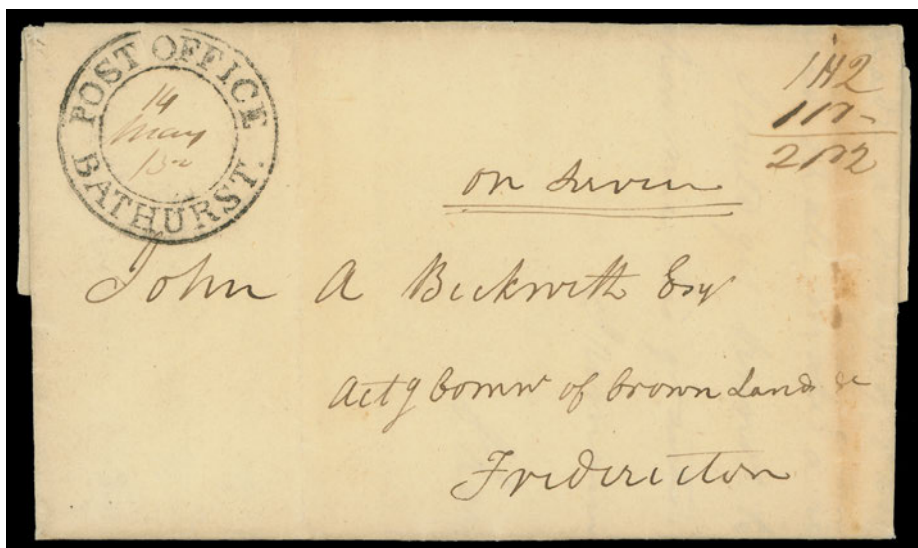 POST OFFICE
BATHURST.
14
May
1N2
11N-
2N2
on Service
John A Beckwith Esq
Actg Comnr of Crown Lands &c
Fredericton